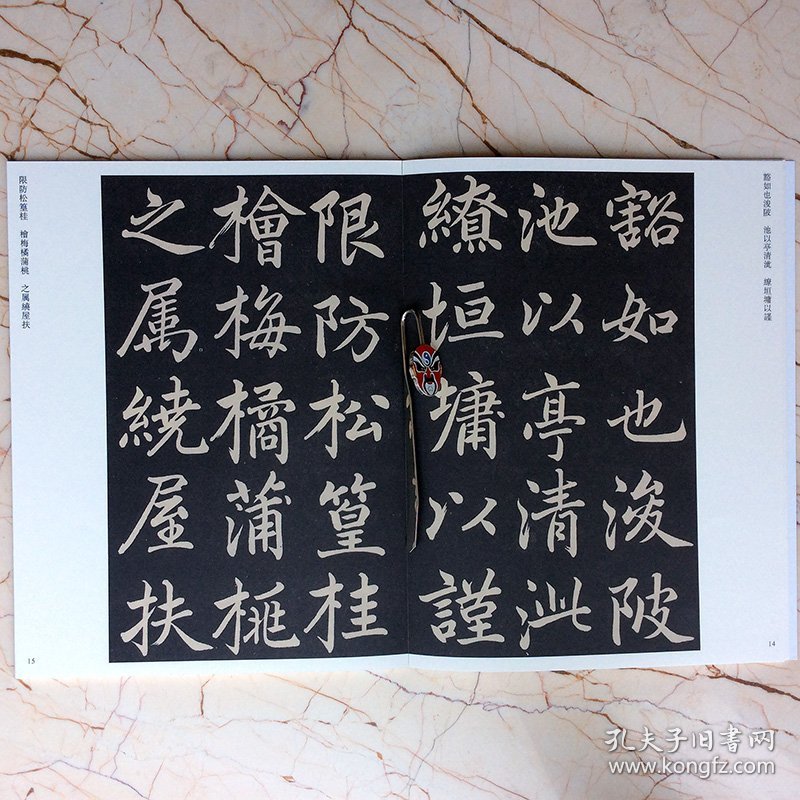 豁如也浚陂
池以亭清泚
繚垣墉以謹
限防松篁桂
檜梅橘蒲桃
之属繞屋扶
豁如也浚陂 池以亭清泚 繚垣墉以謹
14
限防松篁桂 檜梅橘蒲桃 之属繞屋扶
15
孔夫子旧书网
www.kongfz.com